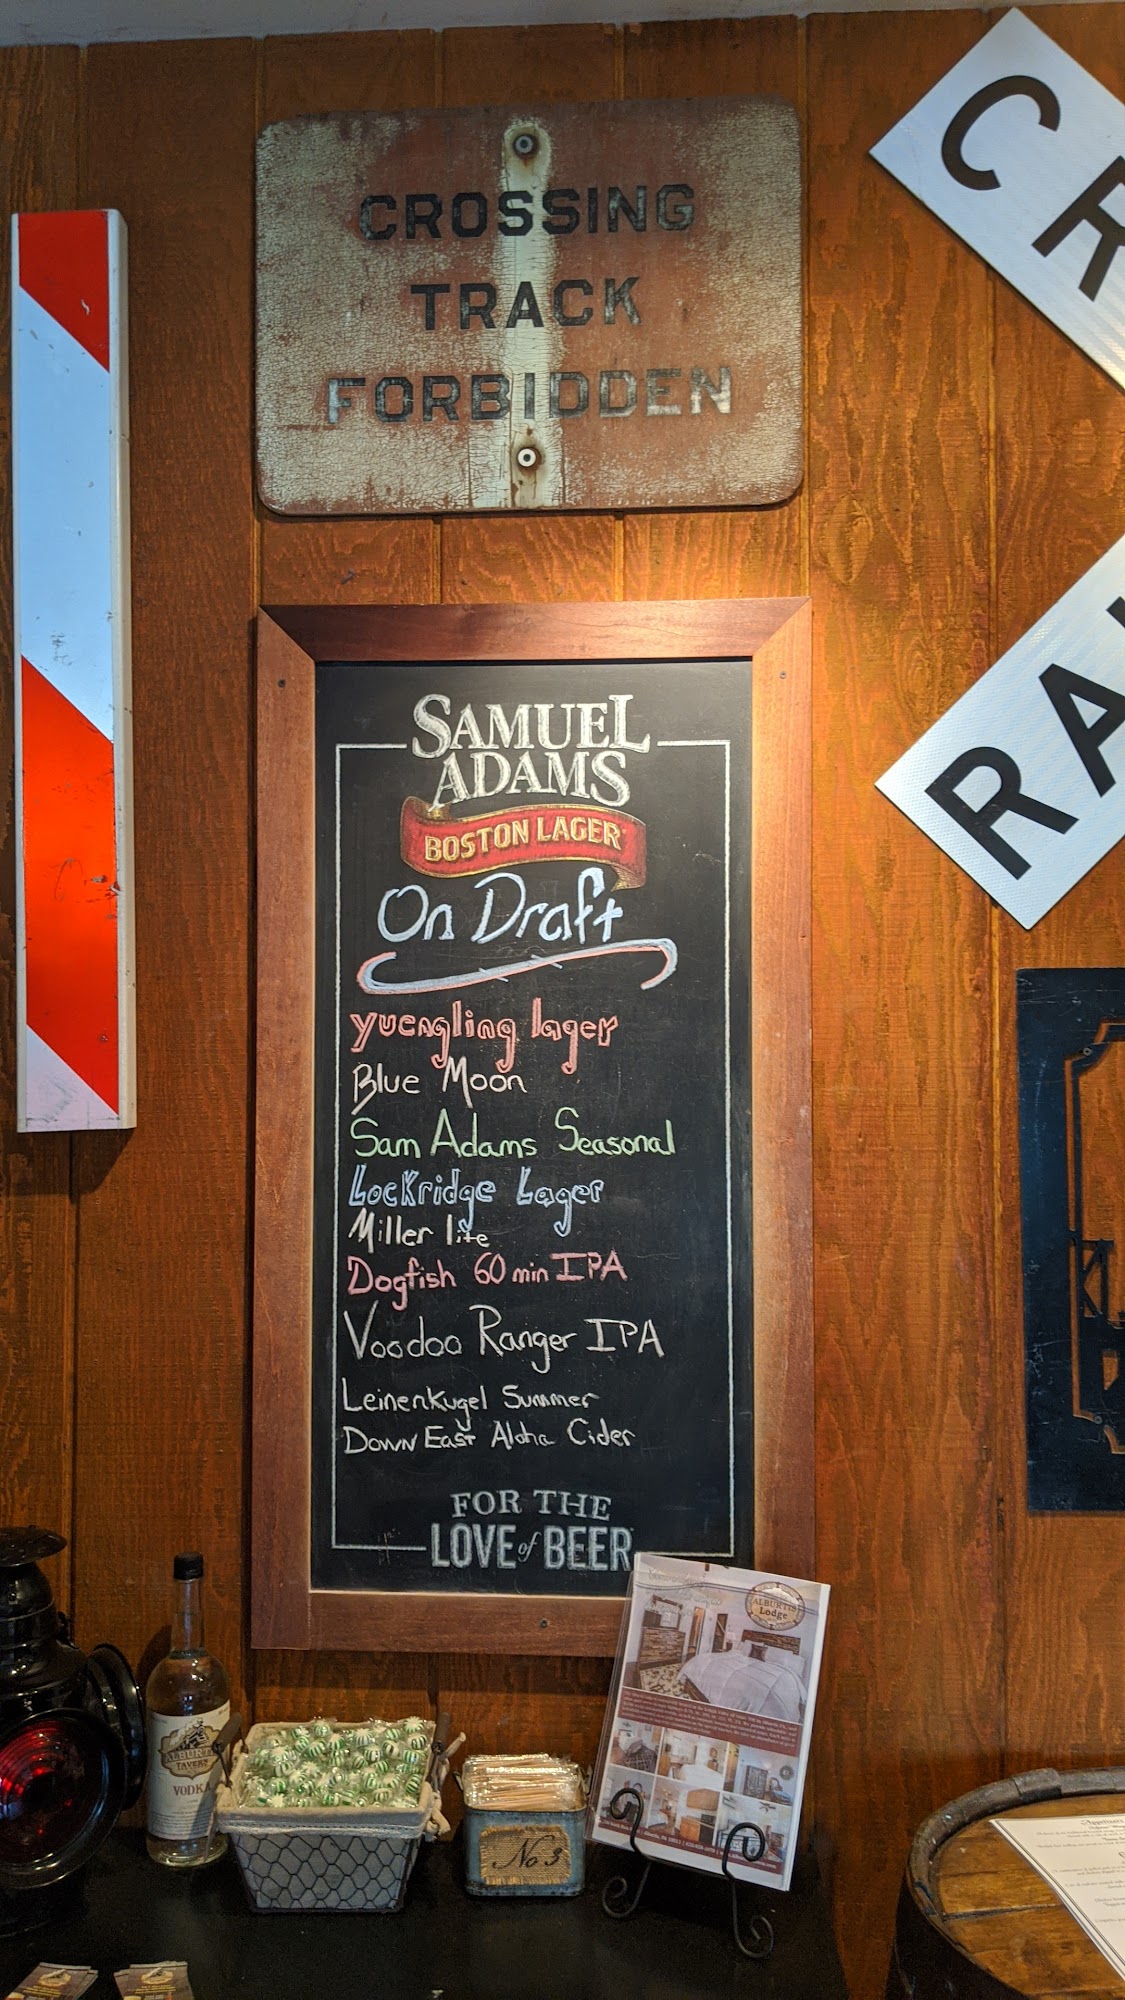 CROSSING
TRACK
FORBIDDEN
CR
RA
SAMUEL
ADAMS
BOSTON LAGER
On Draft
yuengling lager
Blue Moon
Sam Adams Seasonal
Lockridge Lager
Miller lite
Dogfish 60 min IPA
Voodoo Ranger IPA
Leinenkugel Summer
Down East Aloha Cider
FOR THE
LOVE of BEER
ALBURTIS
Lodge
ALBURTIS
TAVERN
VODKA
No 3
Appetizers